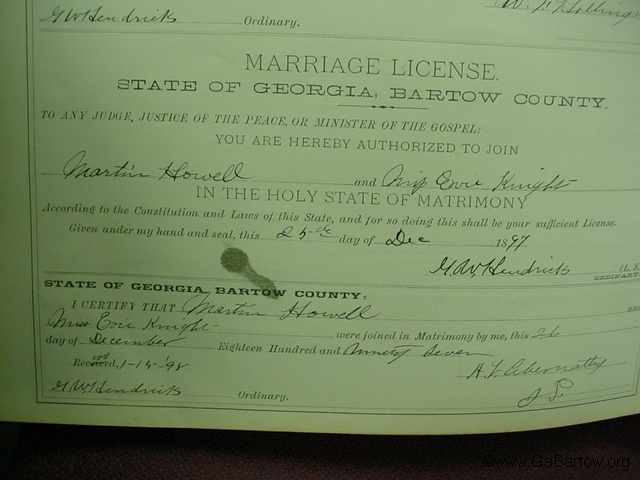 G W Hendricks Ordinary.
MARRIAGE LICENSE.
STATE OF GEORGIA, BARTOW COUNTY.
TO ANY JUDGE, JUSTICE OF THE PEACE, OR MINISTER OF THE GOSPEL:
YOU ARE HEREBY AUTHORIZED TO JOIN
Martin Howell and Miss Evie Knight
IN THE HOLY STATE OF MATRIMONY
According to the Constitution and Laws of this State, and for so doing this shall be your sufficient License.
Given under my hand and seal, this 25 day of Dec 1897
G. W. Hendricks (L. S.
ORDINARY
STATE OF GEORGIA, BARTOW COUNTY:
I CERTIFY THAT Martin Howell
Miss Evie Knight were joined in Matrimony by me, this 26
day of December Eighteen Hundred and ninety seven
H. L. Abernathy
Received, 1-15-'98 J P
G W. Hendricks Ordinary.
©www.GaBartow.org